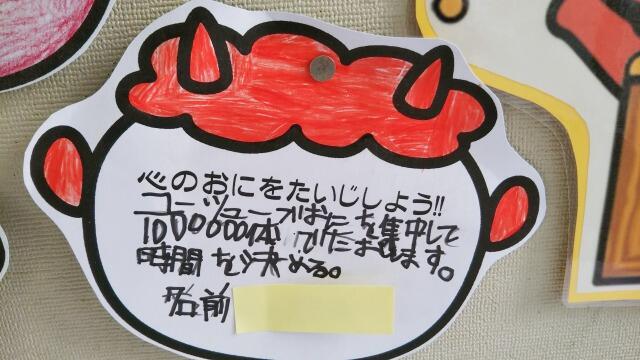 心のおにをたいじしよう!!
ユーツューブおにを集中して
1000000体 ります。
時間を決める。
名前